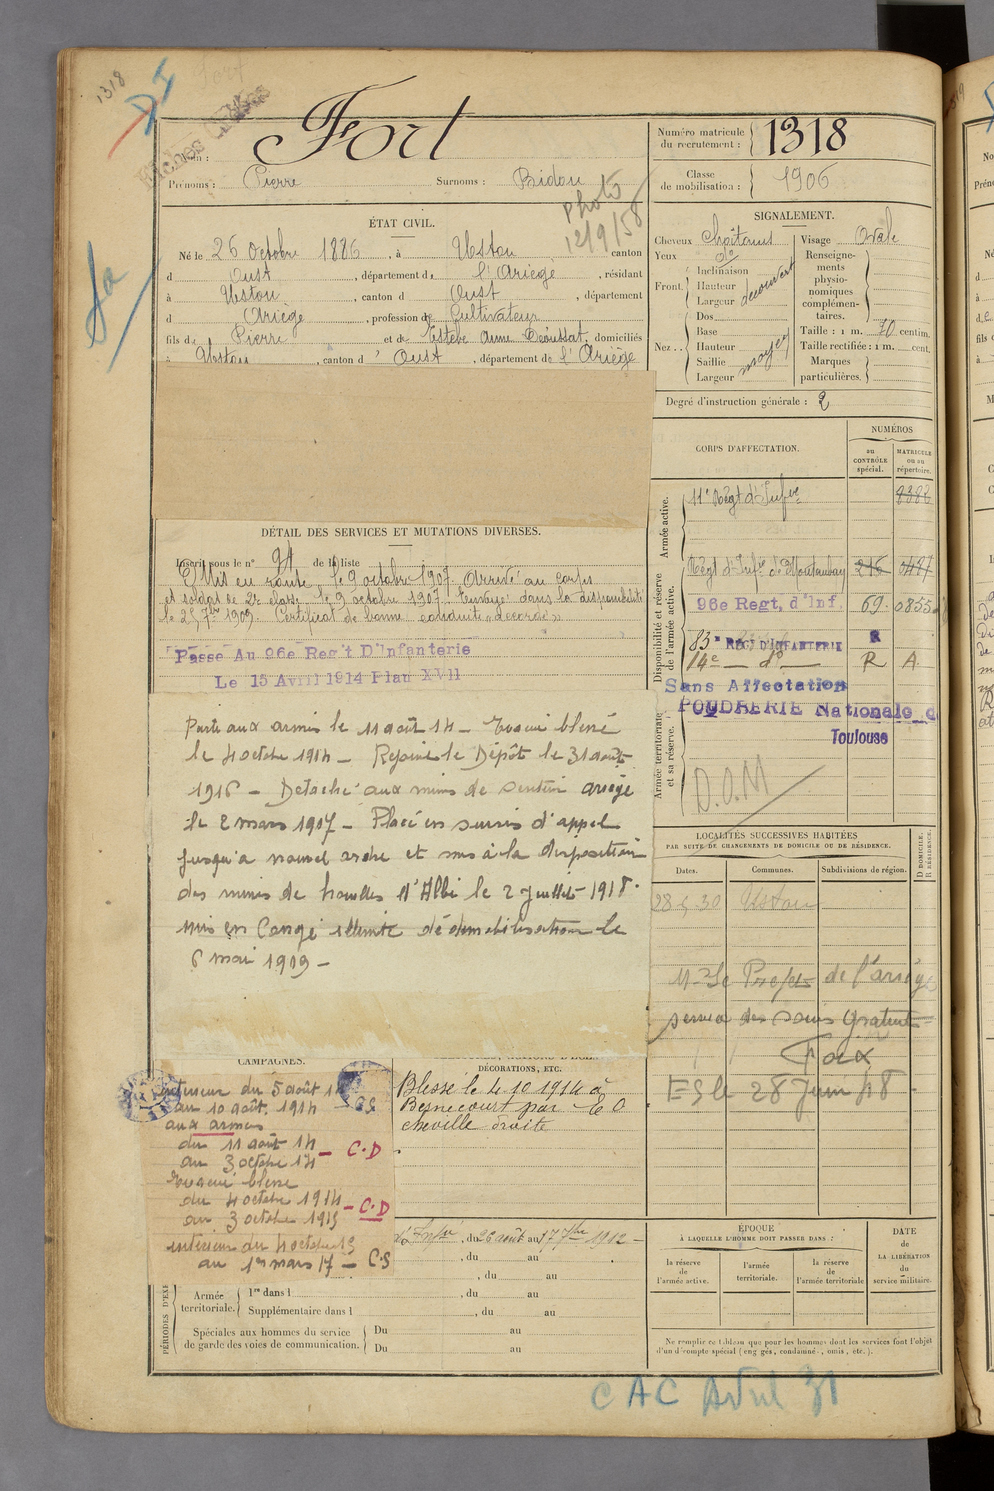 1318
Fort
Nom : Fort
Prénoms : Pierre Surnoms : Bidou
Photo
12/9/58
ÉTAT CIVIL.
Né le 26 Octobre 1886, à Ustou canton
d Oust, département de l'Ariège, résidant
à Ustou, canton d Oust, département
d Ariège, profession de Cultivateur
fils de Pierre et de Estèbe Anne domiciliés
à Ustou, canton d'Oust, département de l'Ariège
Numéro matricule du recrutement : 1318
Classe de mobilisation : 1906
SIGNALEMENT.
Cheveux châtains
Yeux do
Front. Inclinaison
Hauteur
Largeur découvert
Nez. Dos
Base
Hauteur
Saillie moyen
Largeur
Visage Ovale
Renseignements physionomiques complémentaires.
Taille : 1 m. 70 centim.
Taille rectifiée : 1 m. cent.
Marques particulières.
Degré d'instruction générale : 2
DÉTAIL DES SERVICES ET MUTATIONS DIVERSES.
Inscrit sous le n° 94 de la liste
Mis en route le 9 octobre 1907. Arrivé au corps
et soldat de 2e classe le 9 octobre 1907. Envoyé dans la disponibilité
le 25 7bre 1909. Certificat de bonne conduite "accordé"
Passé Au 96e Reg't D'Infanterie
Le 15 Avril 1914 Plan XVII
Parti aux armées le 11 août 14 - Evacué blessé
le 4 octobre 1914 - Rejoint le Dépôt le 31 août
1916 - Détaché aux mines de Sentein Ariège
le 2 mars 1917 - Placé en sursis d'appel
jusqu'à nouvel ordre et mis à la disposition
des mines de houilles d'Albi le 2 Juillet 1918.
Mis en Congé illimité de démobilisation le
6 mai 1919 -
CORPS D'AFFECTATION.
NUMÉROS
au CONTRÔLE spécial.
MATRICULE ou au répertoire.
Armée active.
11e Régt d'Infie
Disponibilité et réserve de l'armée active.
Régt d'Infie de Montauban 216
96e Regt, d'Inf. 69. 0855
83e REG. D'INFANTERIE
14e - do - R A
Sans Affectation
POUDRERIE Nationale d
Toulouse
Armée territoriale et sa réserve.
D.O.M
LOCALITÉS SUCCESSIVES HABITÉES
PAR SUITE DE CHANGEMENTS DE DOMICILE OU DE RÉSIDENCE.
Dates. Communes. Subdivisions de région. D DOMICILE. R RÉSIDENCE.
28 5 30 Ustou
Mr Le Préfet de l'Ariège
service des soins gratuits
Foix
ES le 28 Juin 48
CAMPAGNES.
Intérieur du 5 août 14
au 10 août 1914
aux armées
du 11 août 14
au 3 octobre 14 - C.D
Evacué blessé
du 4 octobre 1914
au 3 octobre 1915 - C.D
intérieur du 4 octobre 15
au 1er mars 17 - C.S
DÉCORATIONS, ETC.
Blessé le 4 10 1914 à
par
cheville droite
d'Infrie, du 26 août au 17 7bre 1912 -
, du au
, du au
PÉRIODES D'EX
Armée territoriale. 1re dans l , du au
Supplémentaire dans l , du au
Spéciales aux hommes du service de garde des voies de communication. Du au
Du au
ÉPOQUE
À LAQUELLE L'HOMME DOIT PASSER DANS :
la réserve de l'armée active.
l'armée territoriale.
la réserve de l'armée territoriale
DATE de LA LIBÉRATION du service militaire.
Ne remplir ce tableau que pour les hommes dont les services font l'objet
d'un décompte spécial (engagés, condamnés, omis, etc.).
CAC Avril 31